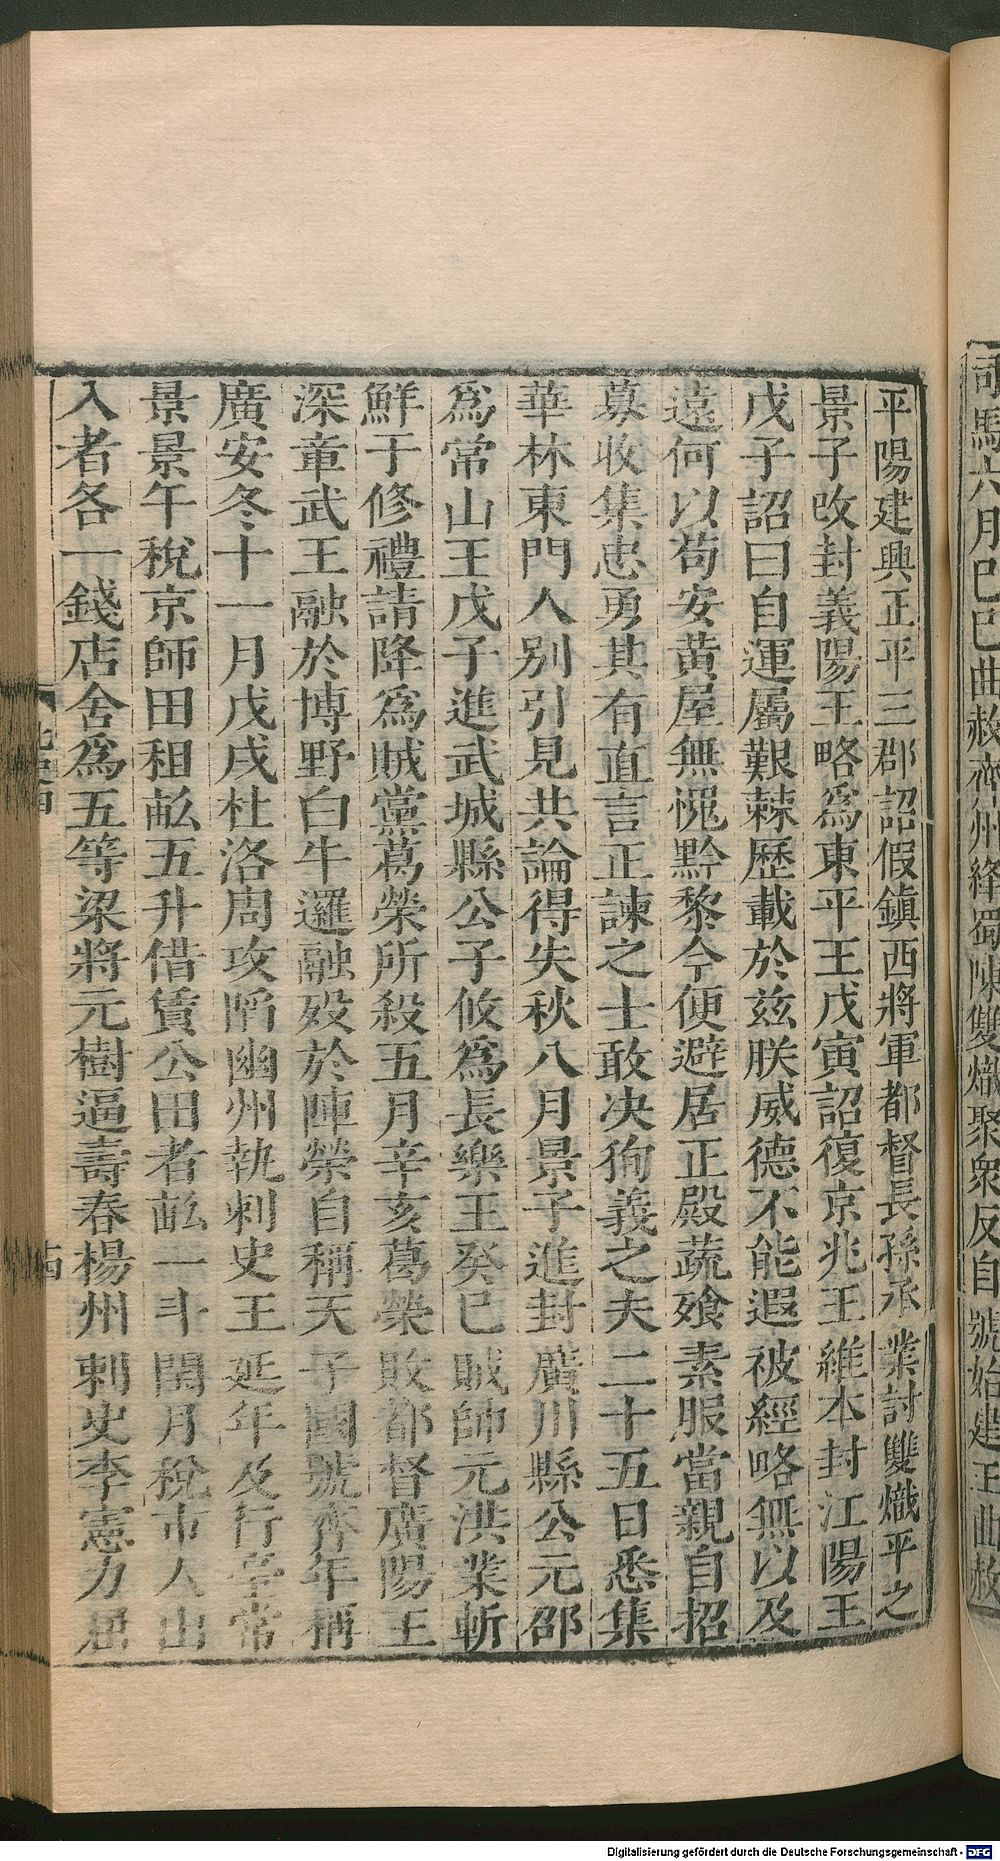 司馬六月己巳曲赦齊州絳蜀陳雙熾聚眾反自號始建王曲赦
平陽建興正平三郡詔假鎮西將軍都督長孫承業討雙熾平之
景子改封義陽王略為東平王戊寅詔復京兆王繼本封江陽王
戊子詔曰自運屬艱棘歷載於茲朕威德不能遐被經略無以及
遠何以苟安黃屋無愧黔黎今便避居正殿蔬飡素服當親自招
募收集忠勇其有直言正諫之士敢决狥義之夫二十五日悉集
華林東門人別引見共論得失秋八月景子進封廣川縣公元邵
爲常山王戊子進武城縣公子攸爲長樂王癸巳賊帥元洪業斬
鮮于修禮請降爲賊黨葛榮所殺五月辛亥葛榮敗都督廣陽王
深章武王融於博野白牛邏融歿於陣榮自稱天子國號齊年稱
廣安冬十一月戊戌杜洛周攻陷幽州執刺史王延年及行臺常
景景午稅京師田租畝五升借賃公田者畝一斗閏月稅市人出
入者各一錢店舍爲五等梁將元樹逼壽春楊州刺史李憲力屈
Digitalisierung gefördert durch die Deutsche Forschungsgemeinschaft - DFG